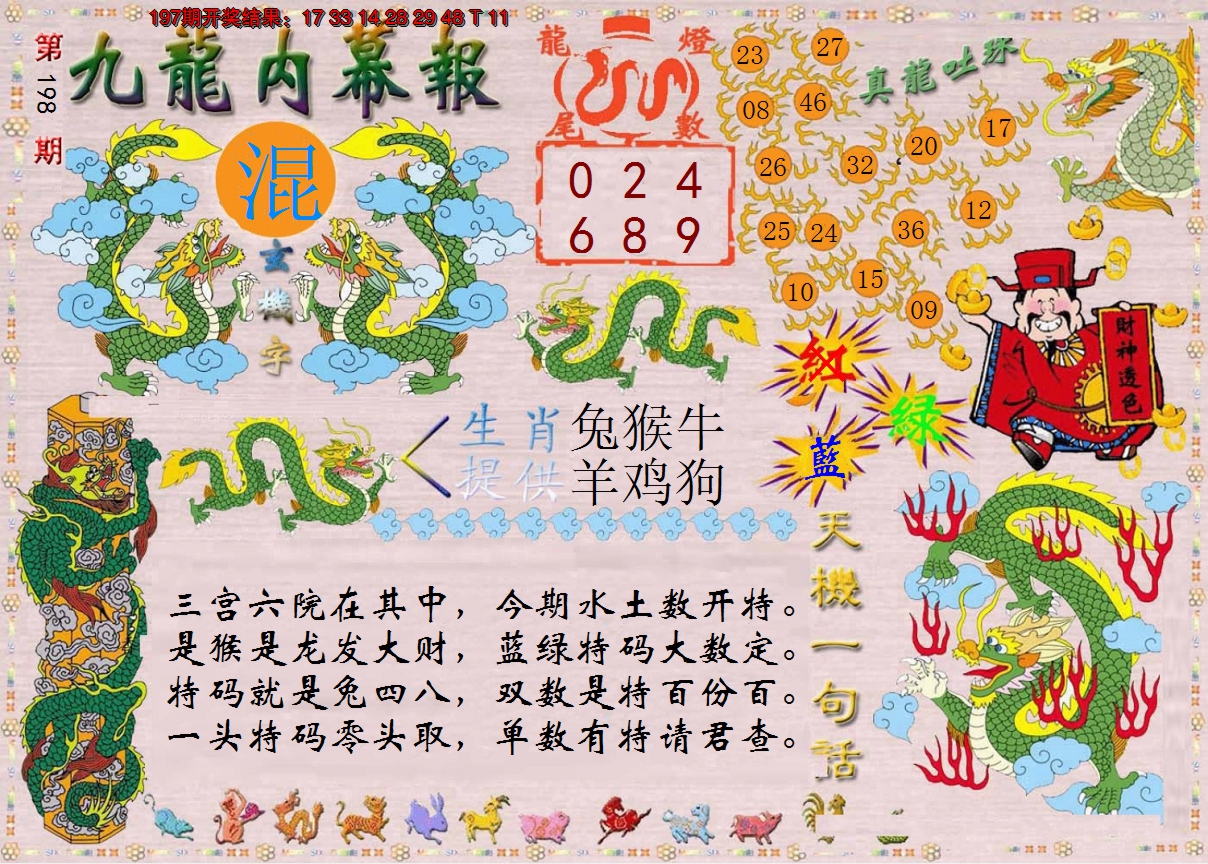 197期开奖结果：17 33 14 28 29 48 T 11
第198期
九龍内幕報
混
玄機字
龍燈
尾數
0 2 4
6 8 9
真龍吐珠
23 27
08 46
26 32 20 17
25 24 36 12
10 15 09
紅
綠
藍
財神透色
生肖提供
兔猴牛
羊鸡狗
天機一句話
三宫六院在其中，今期水土数开特。
是猴是龙发大财，蓝绿特码大数定。
特码就是兔四八，双数是特百份百。
一头特码零头取，单数有特请君查。